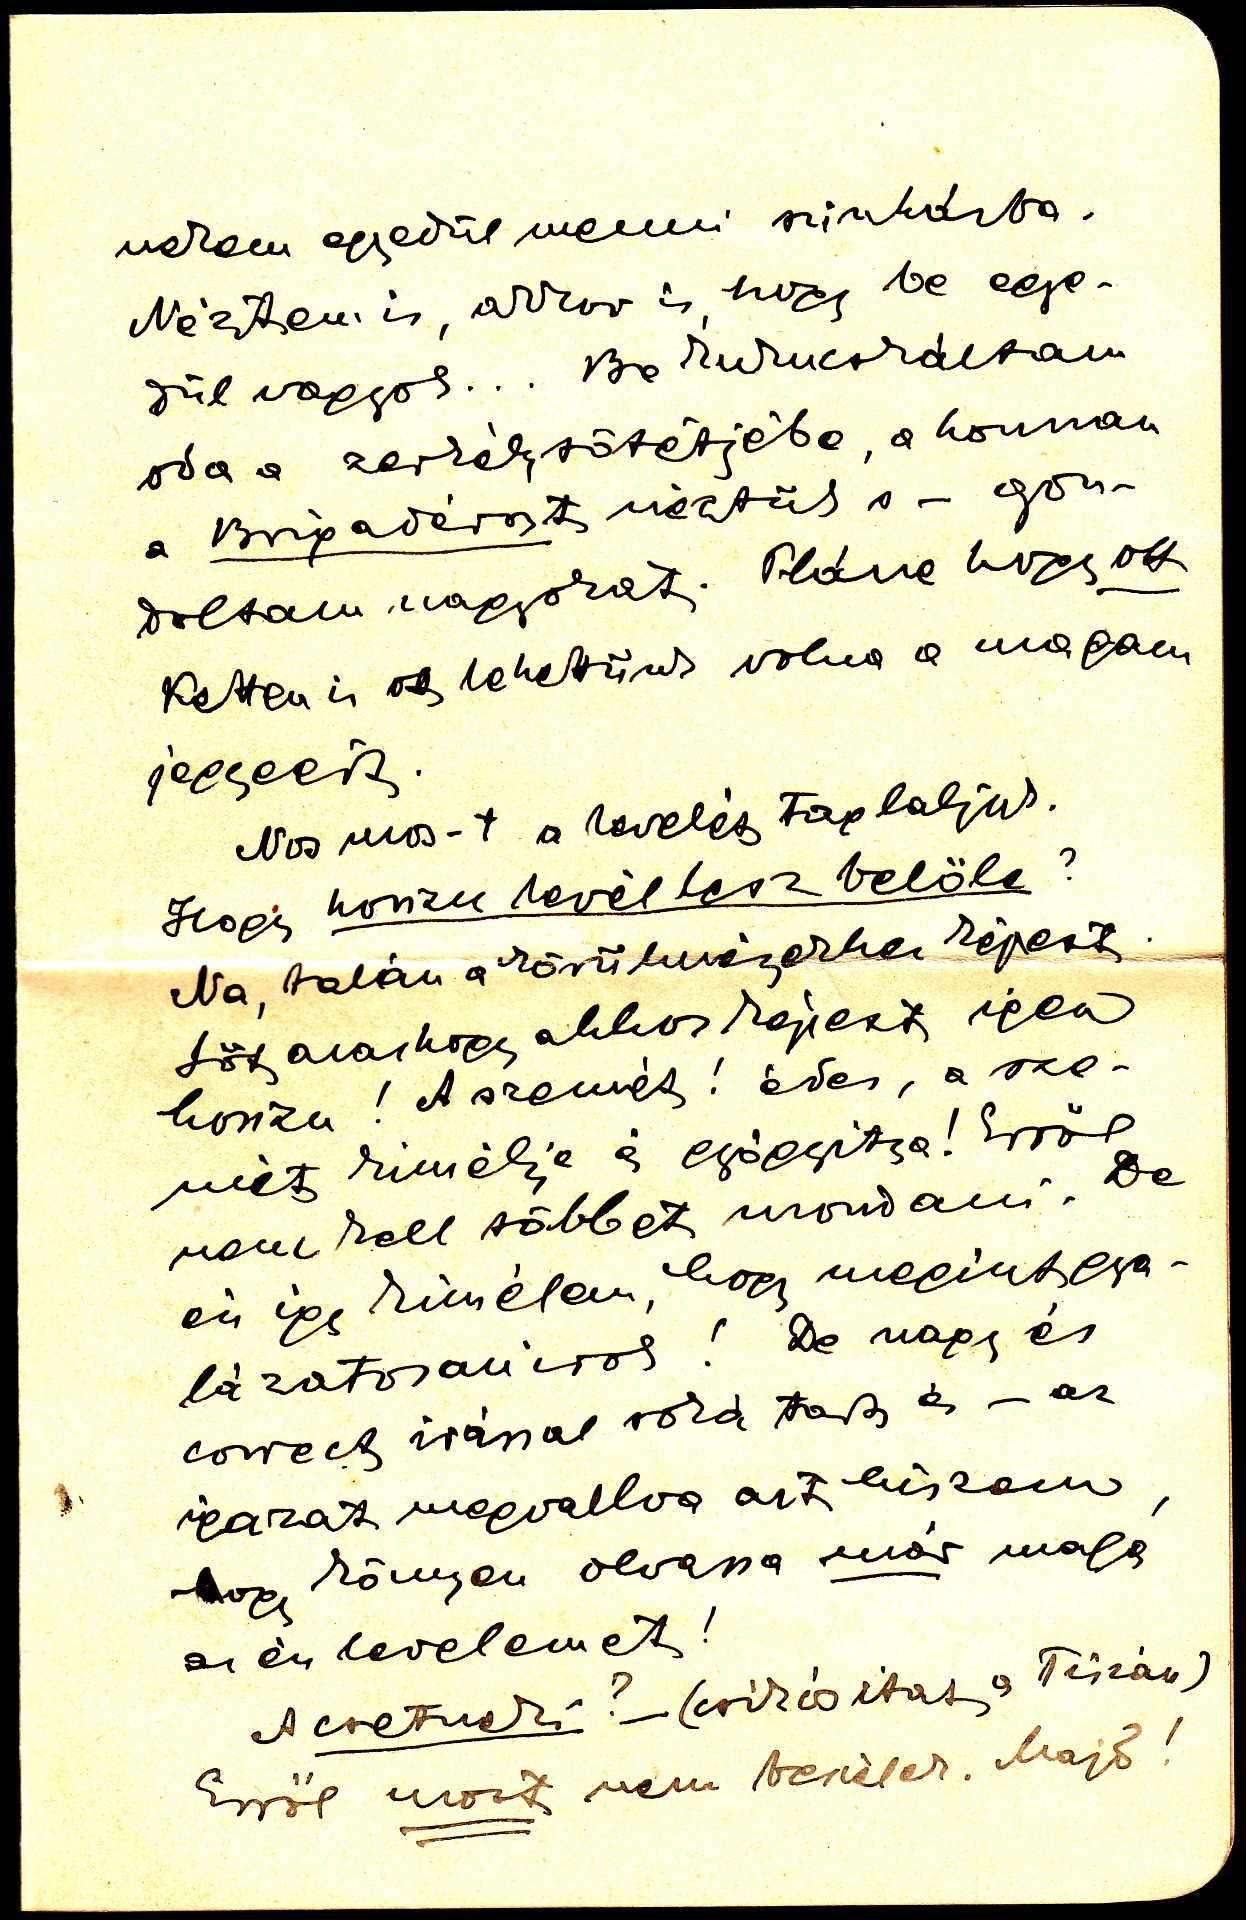 nekem egyedül menni szinházba.
Néztem is, akkor is, hogy be egye-
dül vagyok... Be kukucskáltam
oda a zerkély sötétjébe, a honnan
a Brigadérost néztük s – gon-
doltam nagyokat. Pláne hogy ott
ketten is lehettünk volna a magam
jegyeért.
Nos mos-t a levelét taglaljuk.
Hogy hosszu levél lesz belőle?
Na, talán a rövülményekhez képest.
Sőt, azazhogy ahhoz képest, igen
hosszu! A szemét! édes, a sze-
mét kimélje és gyógyitsa! Erről
nem kell többet mondani. De
én ugy kimélem, hogy megint gya-
lázatosan irok! De nagy és
correct irással soká tart és – az
igazat megvallva azt hiszem,
hogy könnyen olvassa már maga
az én levelemet!
A csetneki? – ( a Tiszán)
Erről most nem beszélek. Majd!